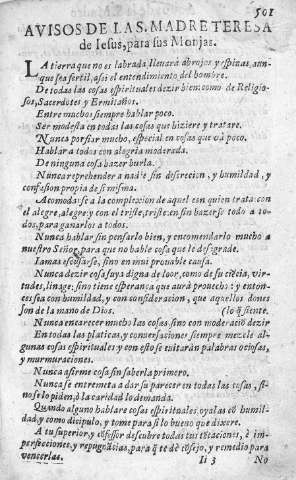 501
AVISOS DE LAS. MADRE TERESA
de Iesus, para sus Monjas.
LA tierra que no es labrada, lleuará abrojos y espinas, aun-
que sea fertil, assi el entendimiento del hombre.
De todas las cosas espirituales dezir bien: como de Religio-
sos, Sacerdotes y Ermitaños.
Entre muchos siempre hablar poco.
Ser modesta en todas las cosas que hiziere y tratare.
Nunca porfiar mucho, especial en cosas que vá poco.
Hablar a todos con alegria moderada.
De ninguna cosa hazer burla.
Nunca reprehender a nadie sin discrecion, y humildad, y
confusion propia de si misma.
Acomodarse a la complexion de aquel con quien trata: con
el alegre, alegre: y con el triste, triste: en fin hazerse todo a to-
dos, para ganarlos a todos.
Nunca hablar sin pensarlo bien, y encomendarlo mucho a
nuestro Señor, para que no hable cosa que le desagrade.
Iamas escusarse, sino en mui prouable causa.
Nunca dezir cosa suya digna de loor, como de su ciēcia, vir-
tudes, linage, sino tiene esperança que aurá prouecho: y enton-
ces sea con humildad, y con consideracion, que aquellos dones
son de la mano de Dios. (lo q̃ siente.
Nunca encarecer mucho las cosas, sino con moderaciō dezir
En todas las platicas, y conuersaciones siempre mezcle al-
gunas cosas espirituales, y con esto se euitarán palabras ociosas,
y murmuraciones.
Nunca afirme cosa sin saberla primero.
Nunca se entremeta a dar su parecer en todas las cosas, si-
no se lo piden, ò la caridad lo demanda.
Quando alguno hablare cosas espirituales, oyalas cō humil-
dad, y como dicipulo, y tome para si lo bueno que dixere.
A tu superior, y cōfessor descubre todas tus tētaciones, è im-
perfecciones, y repugnācias, para q̃ te dē cōsejo, y remedio para
vencerlas.
Ii 3 No